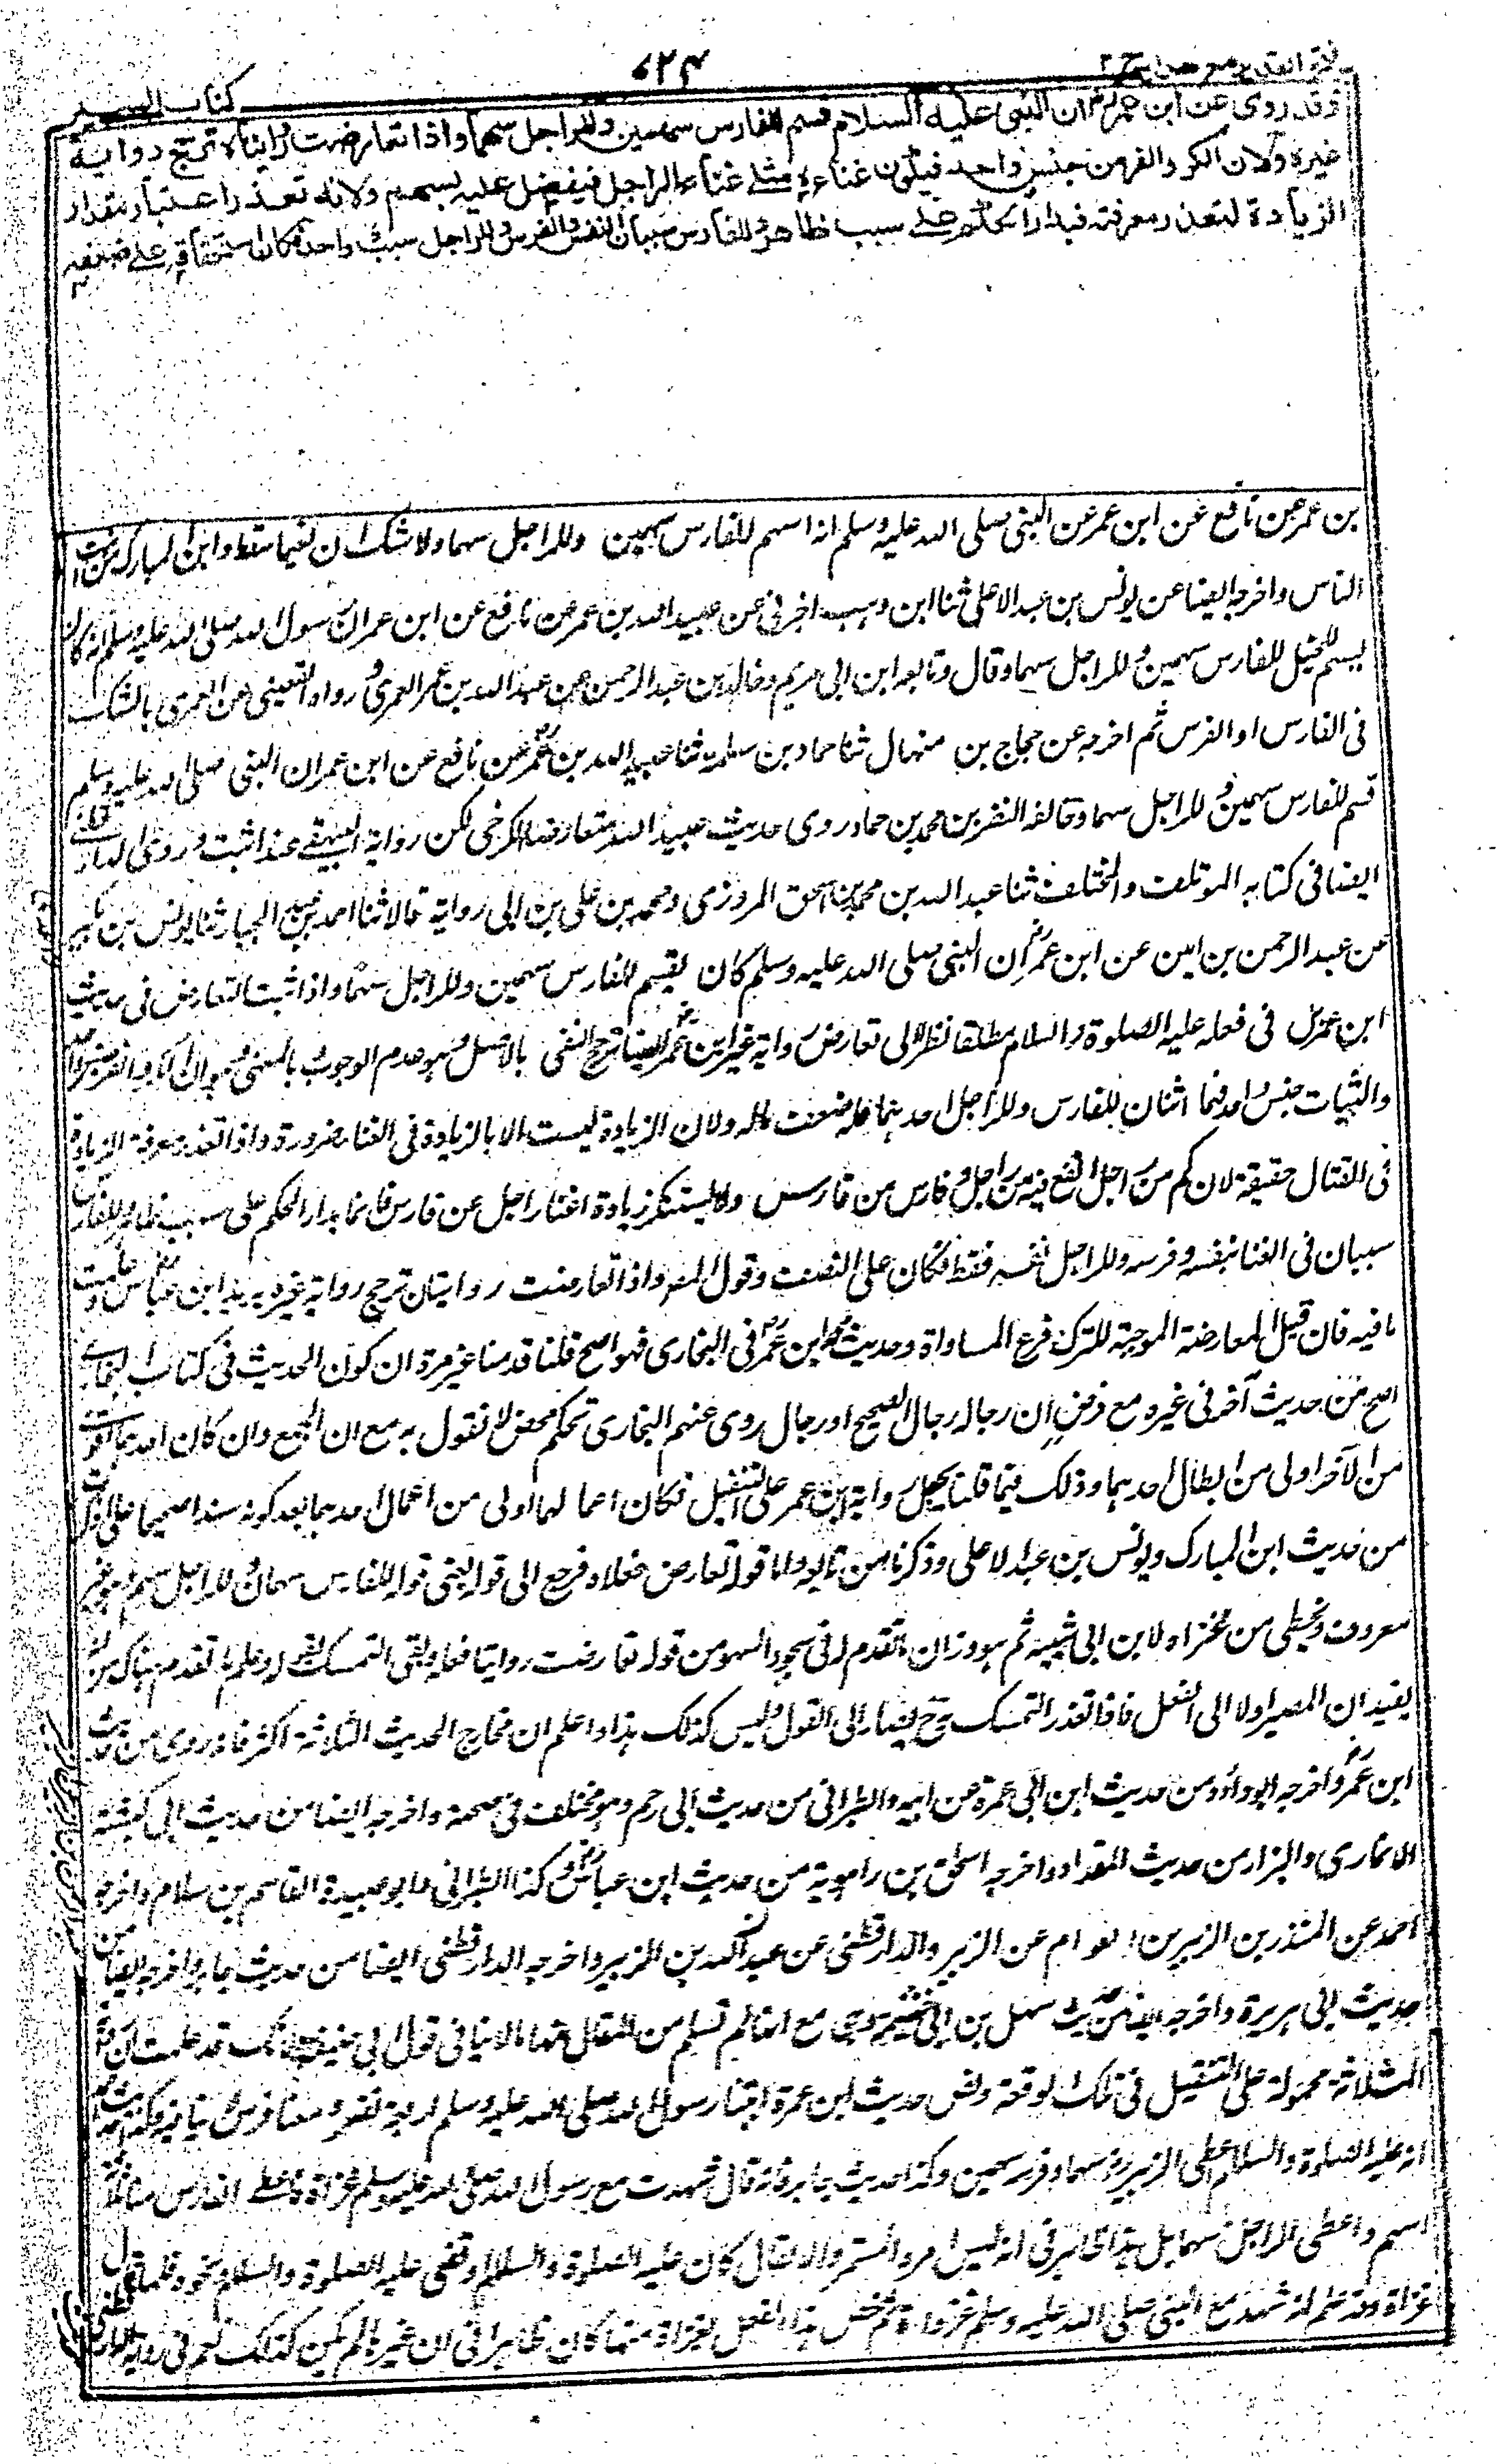 فتح القدير مع هدايه ج ٢
٧٢٤
كتاب السير
وقد روى عن ابن عمر ان النبى عليه السلام قسم للفارس سهمين وللراجل سهما واذا تعارضت روايتاه ترجح رواية
غيره ولان الكر والفر من جنس واحد فيكون غناءه مثلى غناء الراجل فيفضل عليه بسهم ولانه تعذر اعتبار مقدار
الزيادة لتعذر معرفته فيدار الحكم على سبب ظاهر وللفارس سببان النفس والفرس وللراجل سبب واحد فكان استحقاقه على ضعفه
بن عمر عن نافع عن ابن عمر عن النبى صلى الله عليه وسلم انه اسهم للفارس سهمين وللراجل سهما ولا شك ان نعيما ثقة وابن المبارك من اثبت
الناس واخرجه ايضا عن يونس بن عبد الاعلى ثنا ابن وهب اخبرنى عن عبيد الله بن عمر عن نافع عن ابن عمر ان رسول الله صلى الله عليه وسلم انه كان
يسهم للخيل للفارس سهمين وللراجل سهما وقال وتابعه ابن ابى مريم وخالد بن عبد الرحمن عن عبد الله بن عمر العمرى ورواه القعنبى عن العمرى بالشك
فى الفارس او الفرس ثم اخرجه عن حجاج بن منهال ثنا حماد بن سلمة ثنا عبيد الله بن عمر عن نافع عن ابن عمر ان النبى صلى الله عليه وسلم
قسم للفارس سهمين وللراجل سهما وخالفه النضر بن محمد بن حماد وروى حديث عبيد الله متعارضا الكرخى لكن رواية السهمين عنه اثبت وروى الدارقطنى
ايضا فى كتابه المؤتلف والمختلف ثنا عبد الله بن محمد بن اسحق المروزى ومحمد بن على بن ابى رواية قالا ثنا احمد بن عبد الجبار ثنا يونس بن بكير
عن عبد الرحمن بن امين عن ابن عمر ان النبى صلى الله عليه وسلم كان يقسم للفارس سهمين وللراجل سهما واذا ثبت التعارض فى حديث
ابن عمر بل فى فعله عليه الصلوة والسلام مطلقا نظرا الى تعارض رواية غير ابن عمر ايضا ترجح النفى بالاصل وهو عدم الوجوب بالمعنى وهو ان الكر والفر
والثبات جنس واحد فهما اثنان للفارس وللراجل احدهما فله ضعف ماله ولان الزيادة ليست الا بالزيادة فى الغناء ضرورة واذا تعذر معرفة الزيادة
فى القتال حقيقة لان كم من راجل انفع فيه من راجل وفارس من فارس ولا يستنكر زيادة اغناء راجل عن فارس فانما يدار الحكم على سبب ظاهر وللفارس
سببان فى الغناء نفسه وفرسه وللراجل نفسه فقط فكان على النصف وقول المصنف واذا تعارضت روايتان ترجح رواية غيره يريد ابن عباس وقد علمت
ما فيه فان قيل المعارضة الموجبة للترك فرع المساواة وحديث ابن عمر فى البخارى فهو اصح قلنا قدمنا غير مرة ان كون الحديث فى كتاب البخارى
اصح من حديث آخر فى غيره مع فرض ان رجاله رجال الصحيح او رجال روى عنهم البخارى تحكم محض لا نقول به مع ان الجمع وان كان احدهما اقوى
من الآخر اولى من ابطال احدهما وذلك فيما قلنا بحمل رواية ابن عمر على التنفيل فكان اعمالهما اولى من اعمال احدهما بعد كونه سندا صحيحا على ما ذكرت
من حديث ابن المبارك ويونس بن عبد الاعلى وذكرنا من تابعه واما قوله تعارض فعلاه فرجع الى قوله يعنى قوله للفارس سهمان وللراجل سهم فهو غير
معروف وتخطى من عزاه لابن ابى شيبة ثم هو وزان ما تقدم له فى سجود السهو من قوله تعارضت روايتا فعله فبقى التمسك بقوله وعلم ما تقدم هناك من انه
يفيد ان المصير اولا الى الفعل فاذا تعذر التمسك به ح يصار الى القول وليس كذلك هذا واعلم ان مخارج الحديث الثلاثة اكثر فقد روى من حديث
ابن عمر واخرجه ابو داود من حديث ابن ابى عمرة عن ابيه والطبرانى من حديث ابى رهم وهو مختلف فى صحبته واخرجه ايضا من حديث ابى كبشة
الانمارى والبزار من حديث المقداد واخرجه اسحق بن راهوية من حديث ابن عباس وكذا الطبرانى وابو عبيدة القاسم بن سلام واخرجه
احمد عن المنذر بن الزبير بن العوام عن الزبير والدارقطنى عن عبد الله بن الزبير واخرجه الدارقطنى ايضا من حديث جابر واخرجه ايضا من
حديث ابى هريرة واخرجه ايضا من حديث سهل بن ابى حثمة وهى مع انها لم تسلم من المقال فيها لا ينافى قول ابى حنيفة لانك قد علمت ان
الثلاثة محمولة على التنفيل فى تلك الوقعة ونفس حديث ابن عمرة اتينا رسول الله صلى الله عليه وسلم اربعة نفر ومعنا فرس
انه عليه الصلوة والسلام اعطى الزبير سهما وفرسه سهمين وكذا حديث جابر فانه قال شهدت مع رسول الله صلى الله عليه وسلم غزاة فاعطى الفارس منا ثلثة
اسهم واعطى الراجل سهما بل هذا ظاهر فى انه ليس امره المستمر والا لقال كان عليه الصلوة والسلام او قضى عليه الصلوة والسلام ونحوه فلما قال
غزاة وقد علم انه شهد مع النبى صلى الله عليه وسلم غزوات ثم خص هذا الفعل بغزاة منها كان ظاهرا فى ان غيرها لم يكن كذلك نعم فى رواية الدارقطنى